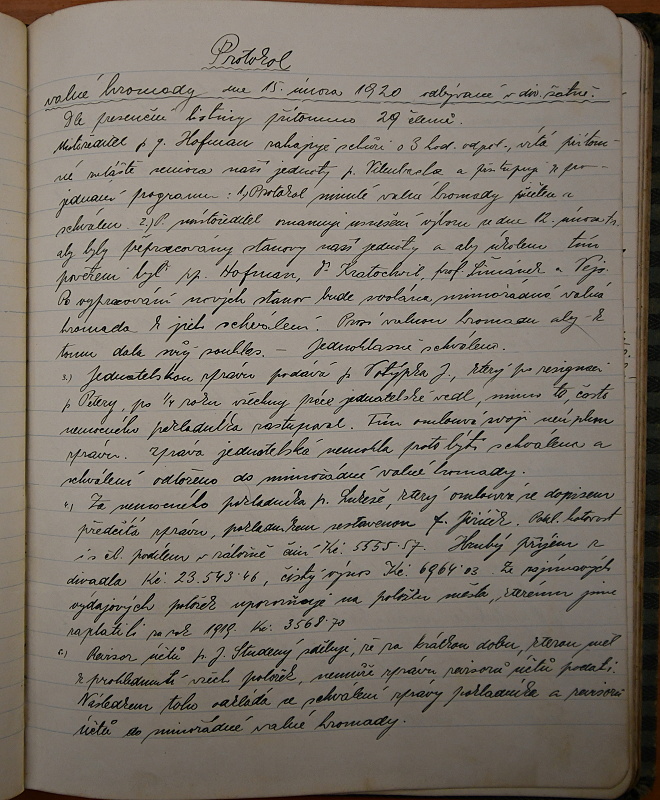 Protokol
valné hromady dne 15. února 1920 odbývané v div. šatně.
Dle presenční listiny přítomno 29 členů.
Místoředitel p. g. Hofman zahajuje schůzi o 3 hod. odpol., vítá přítom-
né zvláště seniora naší jednoty p. a přistupuje k pro-
jednání programu: 1.) Protokol minulé valné hromady přečten a
schválen. 2.) P. místoředitel oznamuje usnesení výboru ze dne 12. února t.r.
aby byly přepracovány stanovy naší jednoty a aby úkolem tím
pověřeni byli pp. Hofman, Dr Kratochvil, prof. Šimánek a Vejs.
Po vypracování nových stanov bude svolána mimořádná valná
hromada k jich schválení. Prosí valnou hromadu aby k
tomu dala svůj souhlas. — Jednohlasně schváleno.
3.) Jednatelskou zprávu podává p. Votýpka J., který po resignaci
p. Petery, po 1/4 roku všechny práce jednatelské vedl, mimo to, často
nemocného pokladníka zastupoval. Tím omlouvá svoji neúplnou
zprávu. Zpráva jednatelská nemohla proto býti schválena a
schválení odloženo do mimořádné valné hromady.
4.) Za nemocného pokladníka p. Lukeše, který omlouvá se dopisem
předčítá zprávu, pokladníkem sestavenou p. Jiříček. Pokl. hotovost
i s čl. podílem v záložně činí Kč. 5555.57. Hrubý příjem z
divadla Kč. 23.543.46, čistý výnos Kč. 6964.03. Ze zajímavých
výdajových položek upozorňuje na položku města, kterému jsme
zaplatili za rok 1919. Kč. 3568.70
5.) Revisor účtů p. J. Studený sděluje, že za krátkou dobu, kterou měl
k prohlédnutí všech položek, nemůže zprávu revisorů účtů podati.
Následkem toho odkládá se schválení zprávy pokladníka a revisorů
účtů do mimořádné valné hromady.